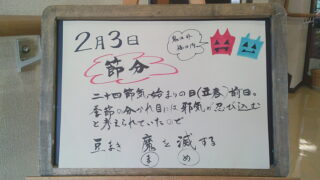 2月3日
鬼は外
福は内
節分
二十四節気、始まりの日(立春)前日。
季節の分かれ目には邪気が忍び込む
と考えられていたので
豆まき 魔を滅する
ま め